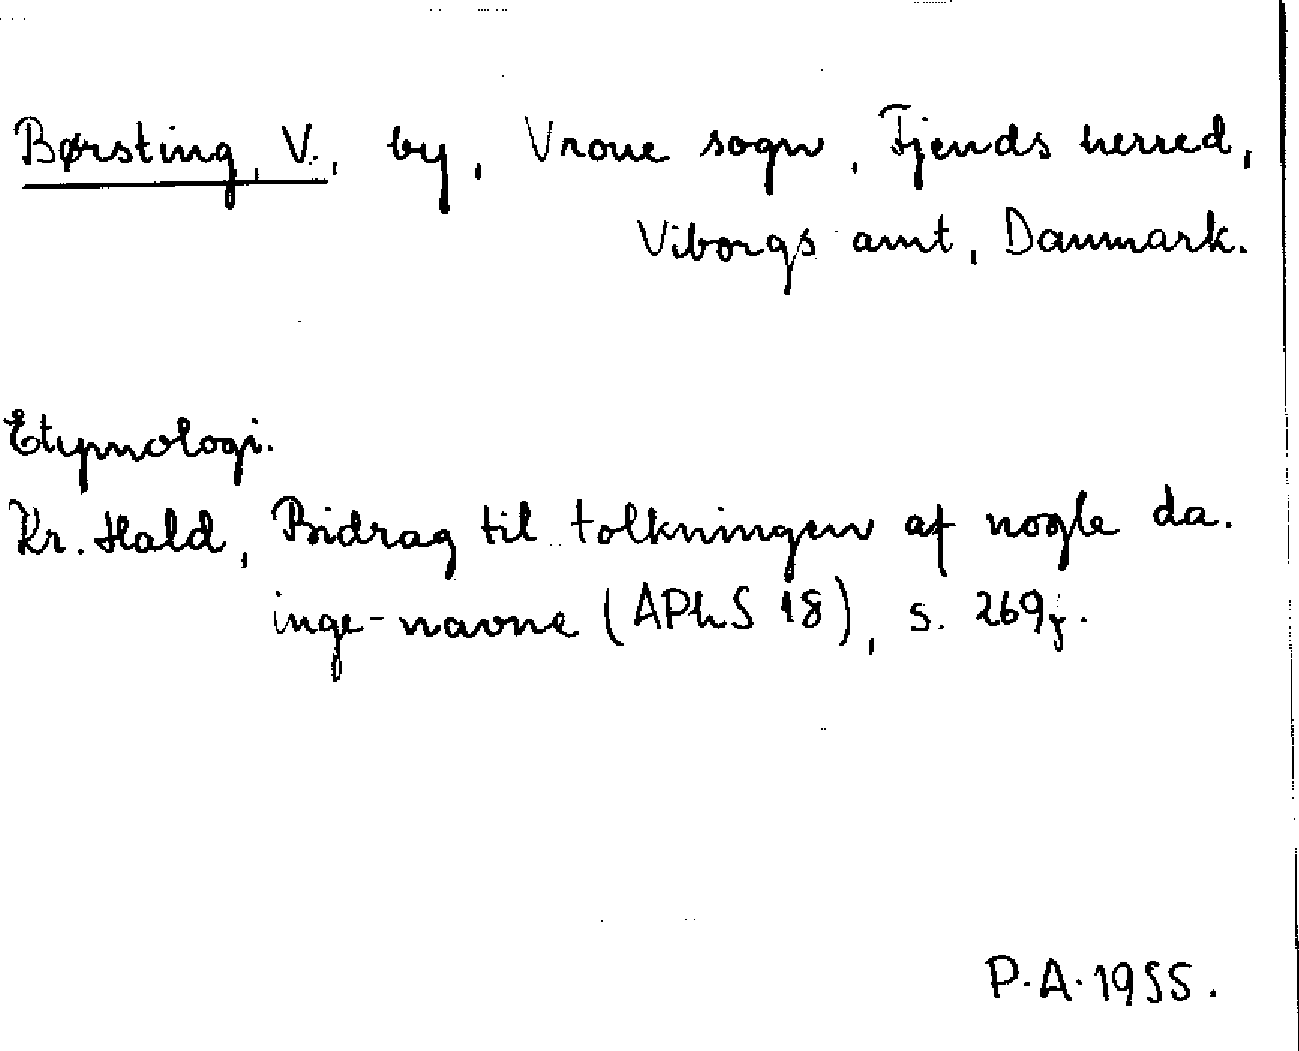 Børsting, V., by, Vroue sogn, Fjends herred,
Viborgs amt, Danmark.
Etymologi.
Kr. Hald, Bidrag til tolkningen af nogle da.
inge-navne (APhS 18), s. 269f.
P.A. 1955.